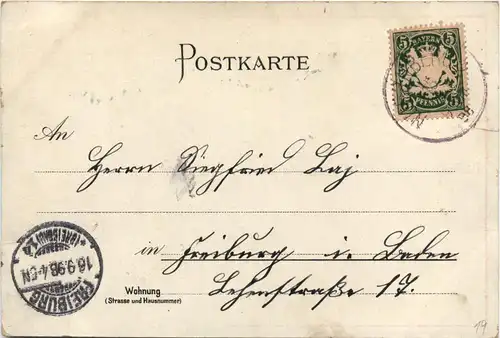 POSTKARTE
5 BAYERN 5
5 PFENNIG 5
An
Herrn Siegfried Laj
in Freiburg i. Baden
Wohnung
(Strasse und Hausnummer)
Lehenstraße 17.
FREIBURG
16.9.98.4-5N.
*(BREISGAU)1.a
98
19